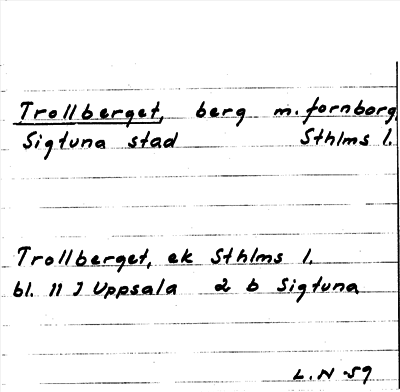 Trollberget, berg m. fornborg
Sigtuna stad Sthlms l.
Trollberget, ek Sthlms l.
bl. 11 J Uppsala 2 b Sigtuna
L. N -59